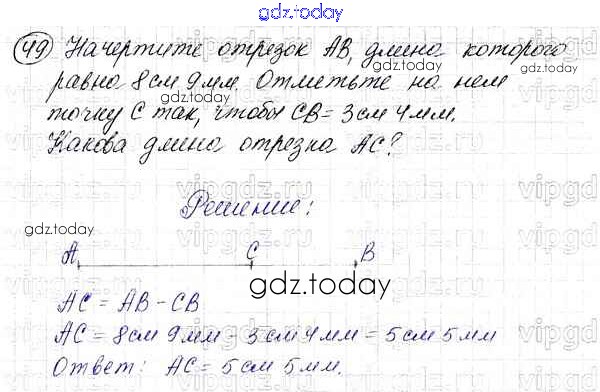 gdz.today
49 Начертите отрезок AB, длина которого
gdz.today
равна 8 см 9 мм. Отметьте на нем
gdz.today
точку C так, чтобы CB = 3 см 4 мм.
Какова длина отрезка AC?
vipgdz.ru
gdz.today
Решение:
A C B
gdz.today
AC = AB - CB
AC = 8 см 9 мм - 3 см 4 мм = 5 см 5 мм
Ответ: AC = 5 см 5 мм.
gdz.today